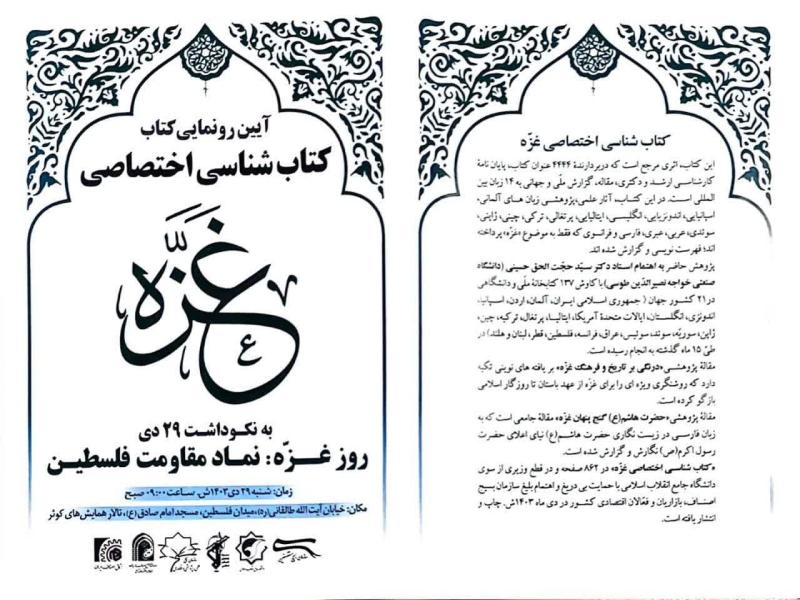 آیین رونمایی کتاب
کتاب شناسی اختصاصی
غزّه
به نکوداشت ۲۹ دی
روز غـزّه: نماد مقاومت فلسطین
زمان: شنبه ۲۹ دی ۱۴۰۳ش، ساعت ۰۹:۰۰ صبح
مکان: خیابان آیت الله طالقانی(ره)، میدان فلسطین، مسجد امام صادق(ع)، تالار همایش‌های کوثر
کتاب شناسی اختصاصی غزّه
این کتاب، اثری مرجع است که دربردارندهٔ ۴۴۴۴ عنوان کتاب، پایان نامهٔ
کارشناسی ارشد و دکتری، مقاله، گزارش ملّی و جهانی به ۱۴ زبان بین
المللی است. در این کتاب، آثار علمی،پژوهشی زبان های آلمانی،
اسپانیایی، اندونزیایی، انگلیسی، ایتالیایی، پرتغالی، ترکی، چینی، ژاپنی،
سوئدی، عربی، عبری، فارسی و فرانسوی که فقط به موضوع «غزّه» پرداخته
اند؛ فهرست نویسی و گزارش شده اند.
پژوهش حاضر به اهتمام استاد دکتر سیّد حجّت الحق حسینی (دانشگاه
صنعتی خواجه نصیرالدّین طوسی) با کاوش ۱۳۷ کتابخانهٔ ملّی و دانشگاهی
در ۲۱ کشور جهان ( جمهوری اسلامی ایران، آلمان، اردن، اسپانیا،
اندونزی، انگلستان، ایالات متحدهٔ آمریکا، ایتالیا، پرتغال، ترکیه، چین،
ژاپن، سوریّه، سوئد، سوئیس، عراق، فرانسه، فلسطین، قطر، لبنان و هلند) در
طیّ ۱۵ ماه گذشته به انجام رسیده است.
مقالهٔ پژوهشی «درنگی بر تاریخ و فرهنگ غزّه» بر یافته های نوینی تکیه
دارد که روشنگری ویژه ای را برای غزّه از عهد باستان تا روزگار اسلامی
بازگو کرده است.
مقالهٔ پژوهشی«حضرت هاشم(ع) گنج پنهان غزّه» مقالهٔ جامعی است که به
زبان فارسی در زیست نگاری حضرت هاشم(ع) نیای اعلای حضرت
رسول اکرم(ص) نگارش و گزارش شده است.
«کتاب شناسی اختصاصی غزّه» در ۸۶۲ صفحه و در قطع وزیری از سوی
دانشگاه جامع انقلاب اسلامی با حمایت بی دریغ و اهتمام بلیغ سازمان بسیج
اصناف، بازاریان و فعّالان اقتصادی کشور در دی ماه ۱۴۰۳ش. چاپ و
انتشار یافته است.